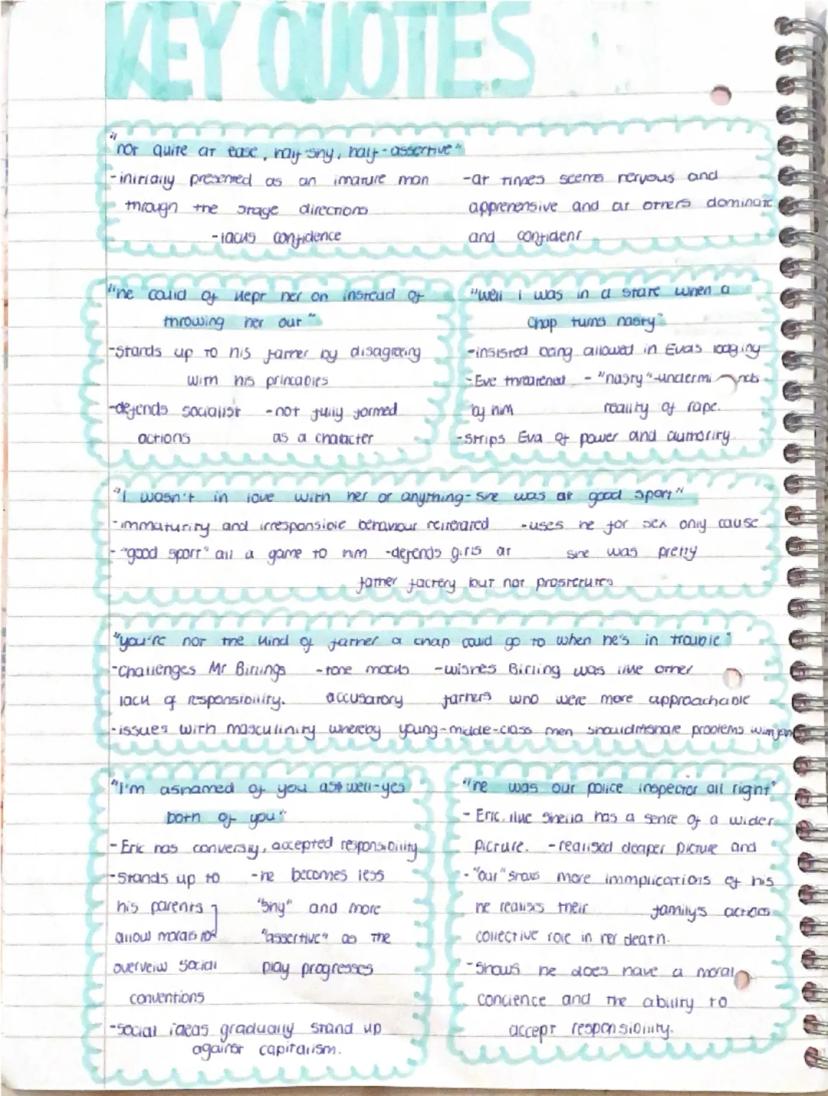 KEY QUOTES
"not quite at ease, half-shy, half-assertive"
-initially presented as an imature man
through the stage directions
-lacks confidence
-at times seems nervous and
apprehensive and at others dominate
and confident
"he could of kept her on instead of
throwing her out"
-stands up to his father by disagreeing
with his princables
-defends socialist
actions
-not fully formed
as a character
"well i was in a state when a
chap turns nasty"
-insisted being allowed in Eva's lodging
-Eve threatened
by him
-"nasty"-undermi nds
reality of rape.
-strips Eva of power and authority.
"I wasn't in love with her or anything-she was at good sport"
-immaturity and irresponsible behaviour reiterated
-"good sport" all a game to him
-uses he for sex only cause
she was pretty
-defends girls at
father factory but not prostitutes
"you're not the kind of father a chap could go to when he's in trouble"
-Challenges Mr Birlings
lack of responsibility.
-tone mocks
accusatory
-wishes Birling was like other
fathers who were more approachable
-issues with masculinity whereby young-middle-class men share problems with
"I'm ashamed of you as well-yes
both of you"
-Eric has accepted responsibility
-Stands up to
his parents
allow morals to
overveiw social
conventions
-he becomes less
"shy" and more
"assertive" as the
play progresses
-social ideas gradually stand up
against capitalism.
"he was our police inspector all right"
-Eric like Sheila has a sense of a wider
picture.
-realised deaper picture and
more immplications of his
family's actions
-"our" shows
he realises their
collective role in her death.
-Shows he does have a moral
concience and the ability to
accept responsibility.